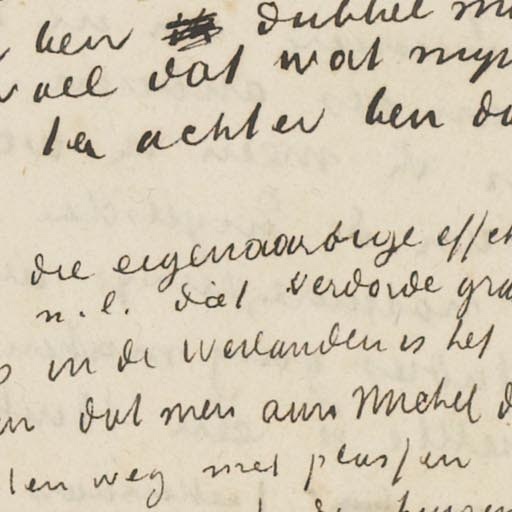 ben dubbel
wel dat wat myn
ten achter ben
die eigenaardige effek
n.l. dat verdorde gra
in de weilanden is het
dat men aan Michel d
len weg met plassen